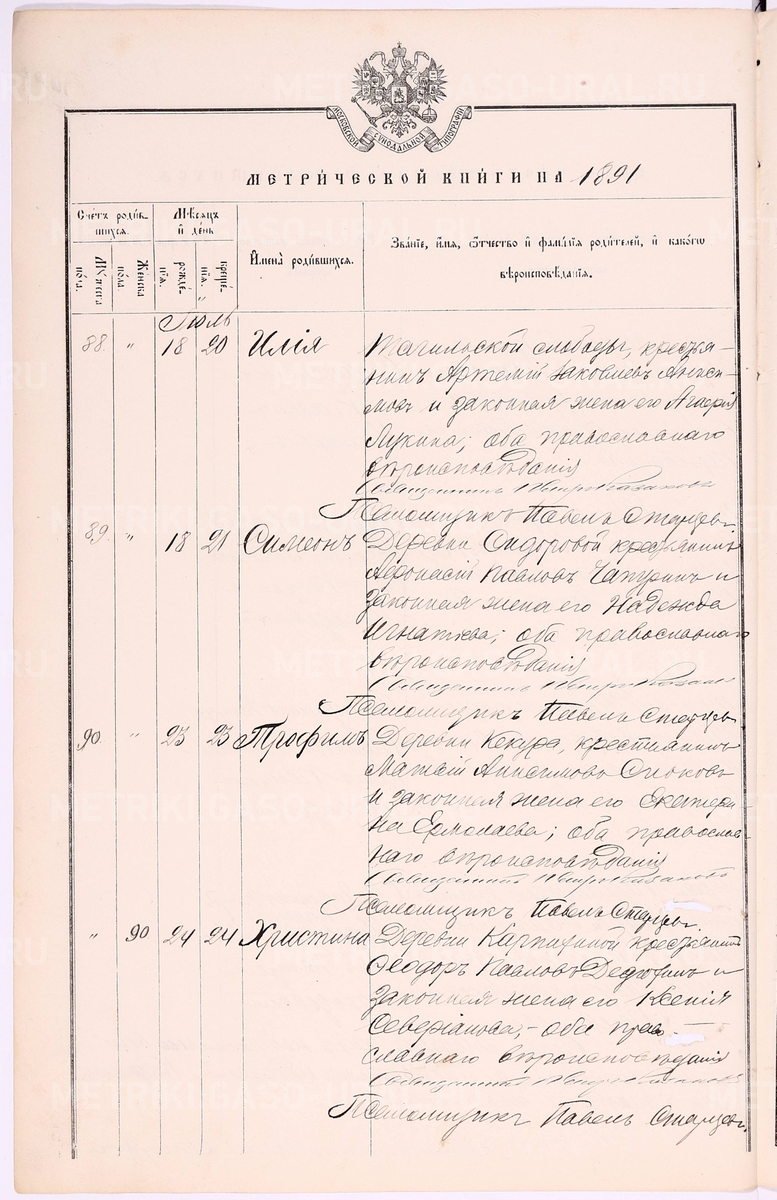 МОСКОВСКОЙ СѴНОДАЛЬНОЙ ТИПОГРАФІИ
МЕТРИ́ЧЕСКОЙ КНИ́ГИ НА 1891
Сче́тъ роди́вшихся.
Мѣ́сяцъ и де́нь
Имена̀ роди́вшихся.
Зва́ніе, и́мя, ѻ҆́тчество и фамі́лія роди́телей, и како́гѡ вѣроисповѣ́данія.
Му́жеска по́ла.
Же́нска по́ла
рожде́нія.
креще́нія.
Іюль
88. " 18 20 Илія Тагильской слободы, крестья-
нинъ Артемій Іаковлевъ Аниси-
мовъ и законная жена его
Лукина; оба православнаго
вѣроисповѣданія
Священникъ
Псаломщикъ Павелъ Старцевъ
89. " 18 21 Симеонъ Деревни Сидоровой крестьянинъ
Афонасій Павловъ Чапуринъ и
законная жена его Надежда
Игнатьева; оба православнаго
вѣроисповѣданія
Священникъ
Псаломщикъ Павелъ Старцевъ
90. " 23 23 Трофимъ Деревни Кекура, крестьянинъ
Матѳій Анисимовъ
и законная жена его Екатери-
на Ермолаева; оба православ-
наго вѣроисповѣданія
Священникъ
Псаломщикъ Павелъ Старцевъ.
" 90 24 24 Христина Деревни Карпихиной крестьянинъ
Ѳеодоръ Павловъ Дедюхинъ и
законная жена его Ксенія
Северіанова, - оба право-
славнаго вѣроисповѣданія
Священникъ
Псаломщикъ Павелъ Старцевъ.
METRIKI.GASO-URAL.RU